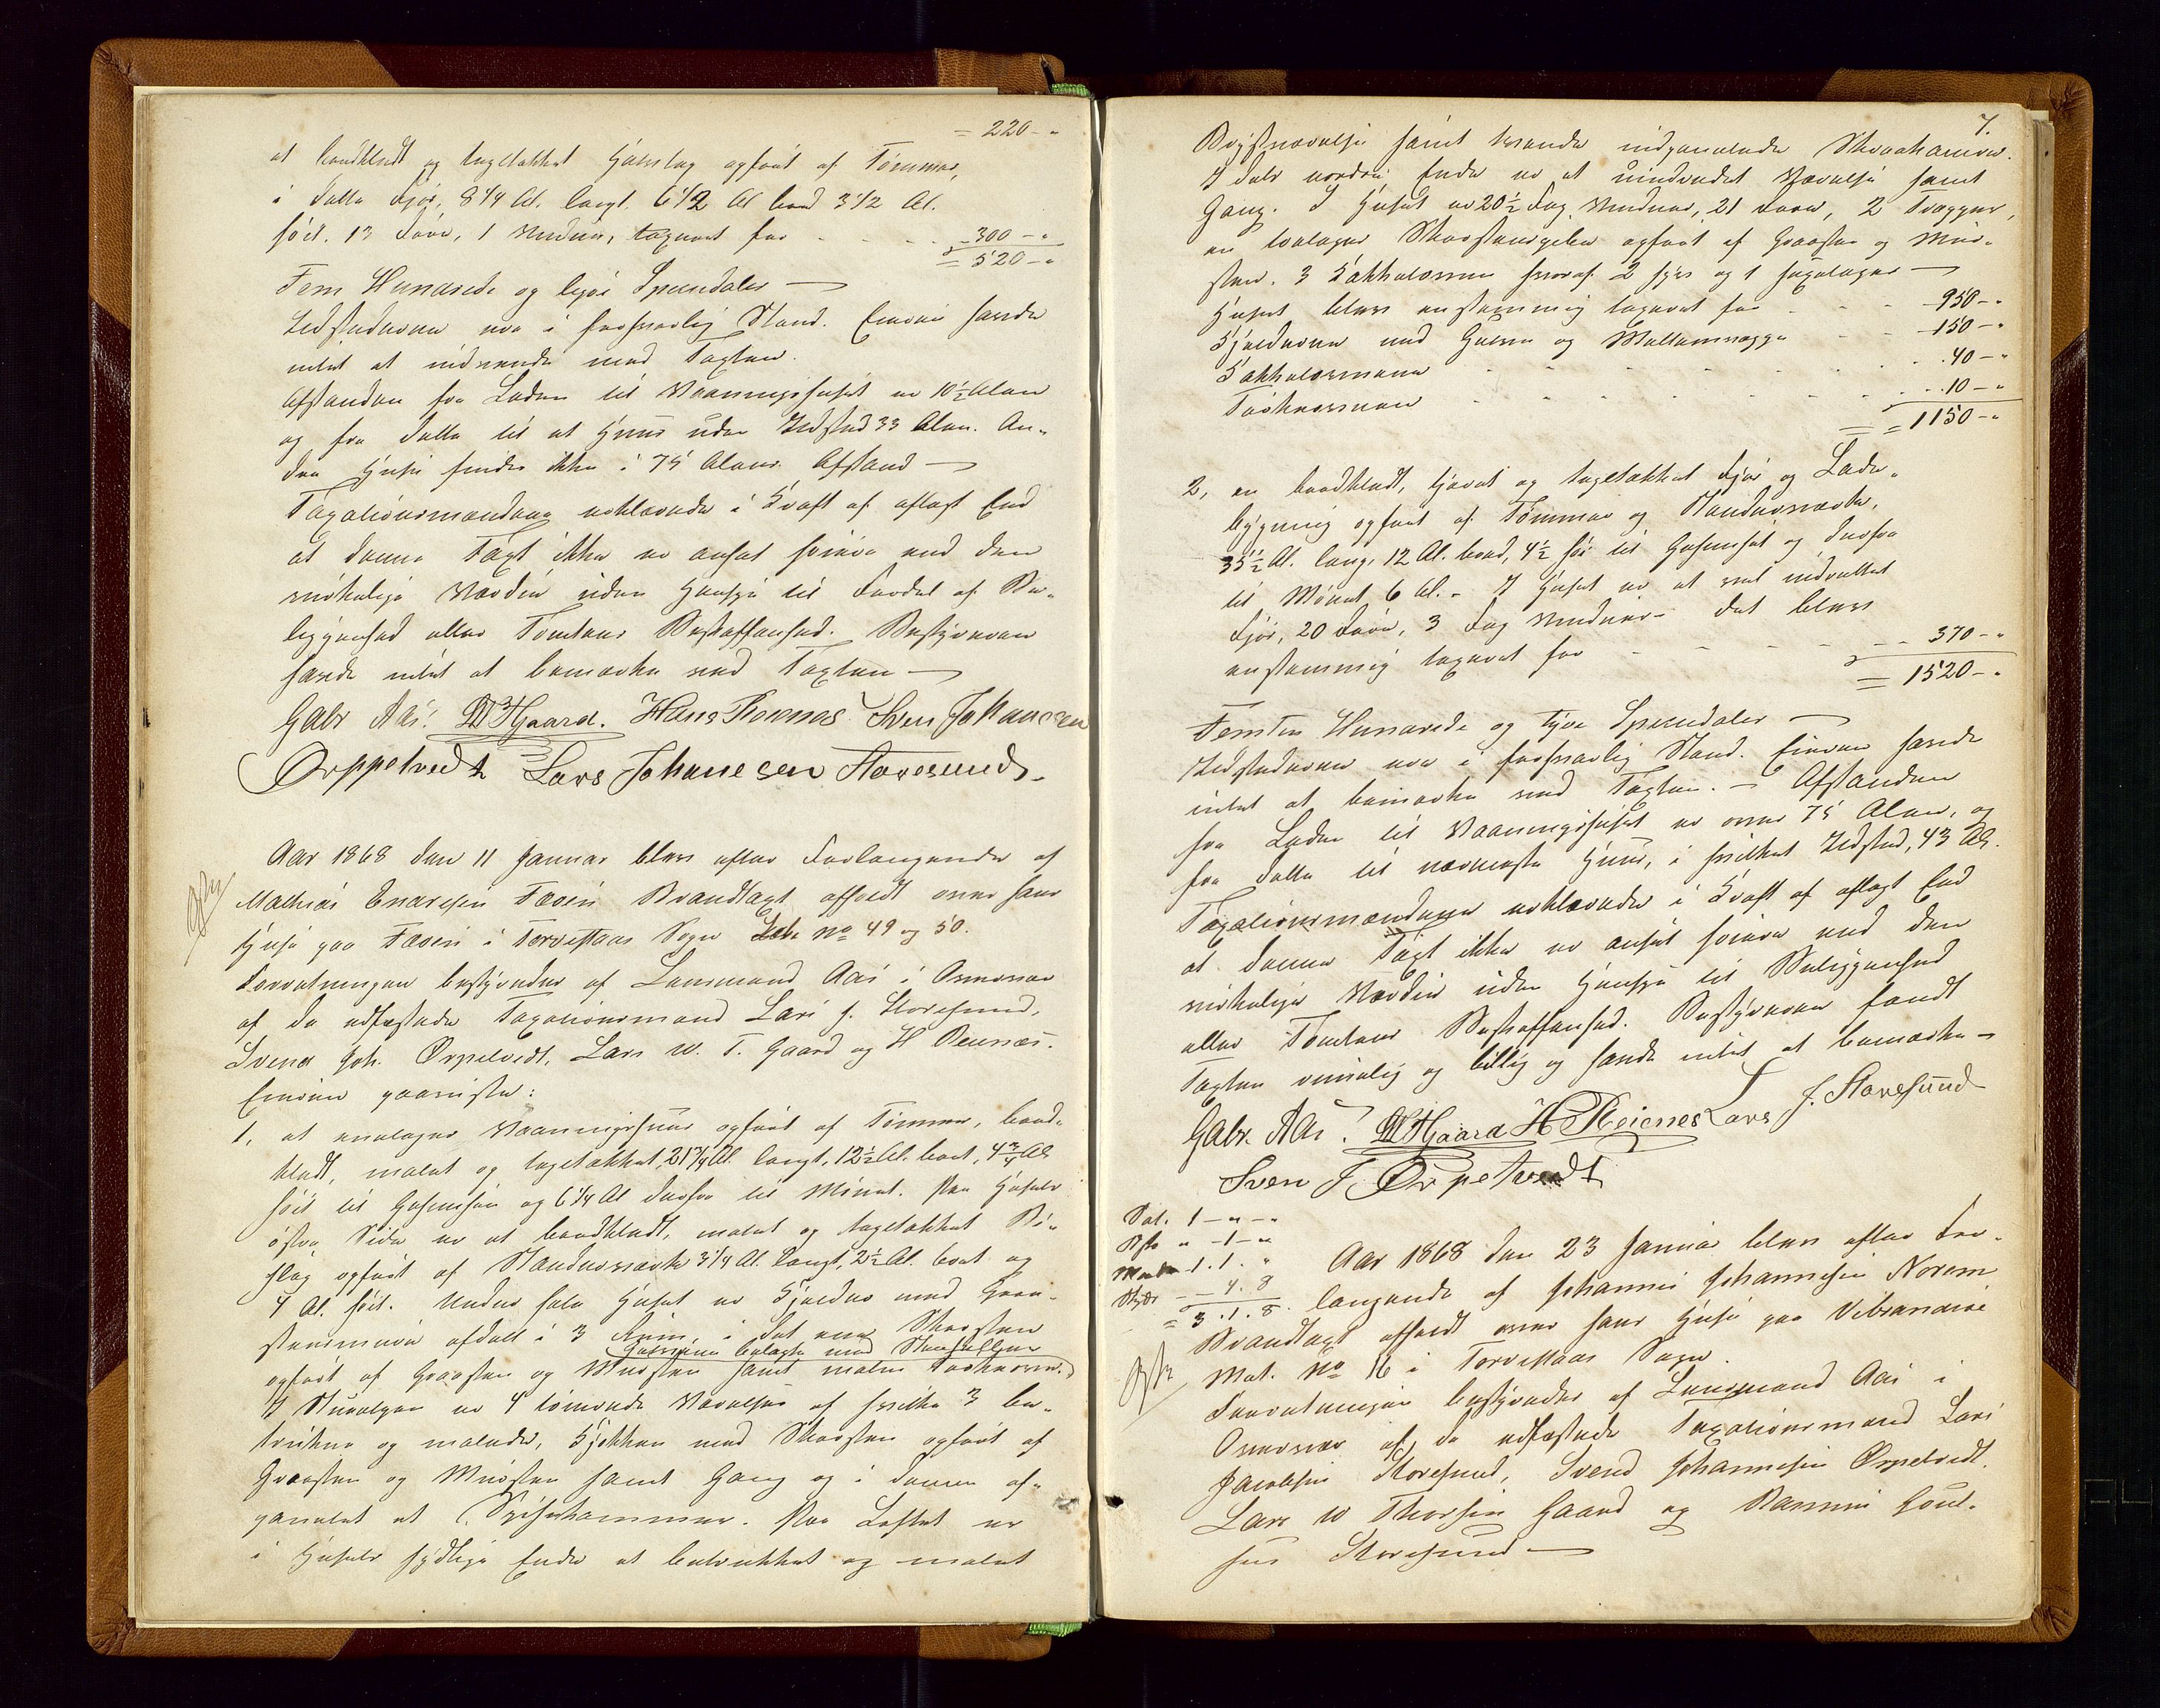 = 220 - "
et bordklædt og tegltækket Halvtag opført af Tømmer,
i dette Fjøs, 8 1/4 Al. langt. 6 1/2 Al bred 3 1/2 Al.
høit. 13 Døre, 1 Vindue, taxeret for - - - 300 - "
= 520 - "
Fem Hundrede og tyve Speciedaler —
Ildstederne var i forsvarlig Stand. Eieren havde
intet at indvende mod Taxten.
Afstanden fra Laden til Vaaningshuset er 10 1/2 Alen
og fra dette til et Huus uden Ildsted 33 Alen. An-
dre Huse findes ikke i 75 Alens Afstand —
Taxationsmændene erklærede i Kraft af aflagt Eed
at denne Taxt ikke er ansat høiere end den
virkelige Værdie uden Hensyn til Fordel af Be-
liggenhed eller Tomtens Beskaffenhed. Bestyreren
havde intet at bemærke ved Taxten —
Gabr Aas. LWTGaard. Hans Reinnes Sven Johannesen
Ørppetvedt Lars Johanesen Storesund.
Aar 1868 den 11 Januar blev efter Forlangende af
Mathias Enersen Fæøen Brandtaxt afholdt over hans
Huse paa Fæøen i Torvestads Sogn Løbe No 49 og 50.
Forretningen bestyredes af Lensmand Aas i Overvær
af de edfæstede Taxationsmænd Lars J. Storesund,
Svend Joh. Ørpetvedt, Lars W. T. Gaard og H Reinnæs.
Eieren paaviste:
1, et enetages Vaaningshuus opført af Tømmer, bord-
klædt, malet og tegltækket, 21 3/4 Al. langt, 12 1/2 Al. bredt, 4 3/4 Al
høit til Gesimsen og 6 1/4 Al derfra til Mønet. Paa Husets
østre Side er et bordklædt, malet og tegltækket Bi-
slag opført af Stænderværk 3 1/4 Al. langt, 2 1/2 Al. bredt og
4 Al. høit. Under hele Huset er Kjælder med Graa-
steensmuur afdelt i 3 Rum, i det ene Skorsten
Gulvene belagte med Steenheller
opført af Graasten og Muursten samt malm Torkeovn.
I Stueetagen er 4 tømrede Værelser af hvilke 3 be-
trukne og malede, Kjøkken med Skorsten opført af
Graasten og Muursten samt Gang og i denne af-
panelet et Spisekammer. Paa Loftet er
i Husets sydlige Ende et betrækket og malet
7.
Qvistværelse samt tvende indpanelede Skraakamre.
I dets nordre Ende er et uindredet Værelse samt
Gang. I Huset er 20 1/2 Fag Vinduer, 21 Døre, 2 Trapper,
en toetages Skorsteenspibe opført af Graasten og Muur-
sten. 3 Kakkelovne hvoraf 2 fiir og 1 treetages —
Huset blev enstemmig taxeret for - - - 950 - "
Kjælderen med Gulve og Mellemvægge - - 150 - "
Kakkelovnene - - - - 40 - "
Torkeovnen - - - - 10 - "
= 1150 - "
2, en bordklædt, tjæret og tegltækket Fjøs og Lade-
bygning opført af Tømmer og Stænderværk,
35 1/2 Al. lang, 12 Al. bred, 4 1/2 høi til Gesimset og derfra
til Mønet 6 Al. - I Huset er et vel indrettet
Fjøs, 20 Døre, 3 Fag Vinduer - det blev
enstemmig taxeret for - - - - 370 - "
= 1520 - "
Femten Hundrede og tyve Speciedaler —
Ildstederne var i forsvarlig Stand. Eieren havde
intet at bemærke ved Taxten. — Afstanden
fra Laden til Vaaningshuset er over 75 Alen, og
fra dette til nærmeste Huus, i hvilket Ildsted, 43 Al.
Taxationsmændene erklærede i Kraft af aflagt Eed
at denne Taxt ikke er ansat høiere end den
virkelige Værdie uden Hensyn til Beliggenhed
eller Tomtens Beskaffenhed. Bestyreren fandt
Taxten rimelig og billig og havde intet at bemærke —
Gabr. Aas. LWTGaard H Reienes Lars J. Storesund
Sven J. Ørpetvedt
Sal. 1 - " - "
" - 1 - "
1. 1. "
- 4. 8
= 3. 1. 8.
Aar 1868 den 23 Januar blev efter For-
langende af Johannes Johannesen Norem
Brandtaxt afholdt over hans Huse paa Vibrandsøe
Mat. No 16 i Torvestads Sogn.
Forretningen bestyredes af Lensmand Aas i
Overvær af de edfæstede Taxationsmænd Lars
Jacobsen Storesund, Svend Johannesen Ørpetvedt.
Lars W Thorsen Gaard og Rasmus Goul-
sen Storesund —